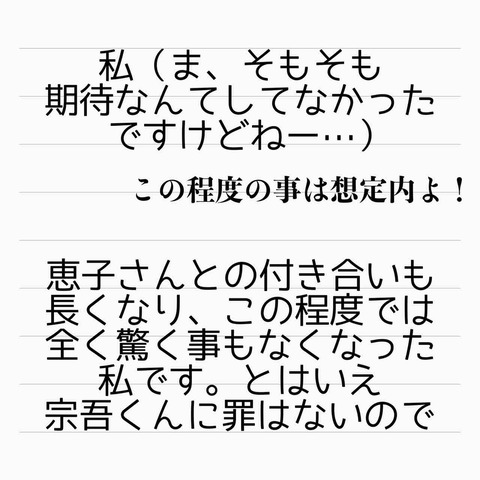 私（ま、そもそも
期待なんてしてなかった
ですけどねー…）
この程度の事は想定内よ！
恵子さんとの付き合いも
長くなり、この程度では
全く驚く事もなくなった
私です。とはいえ
宗吾くんに罪はないので